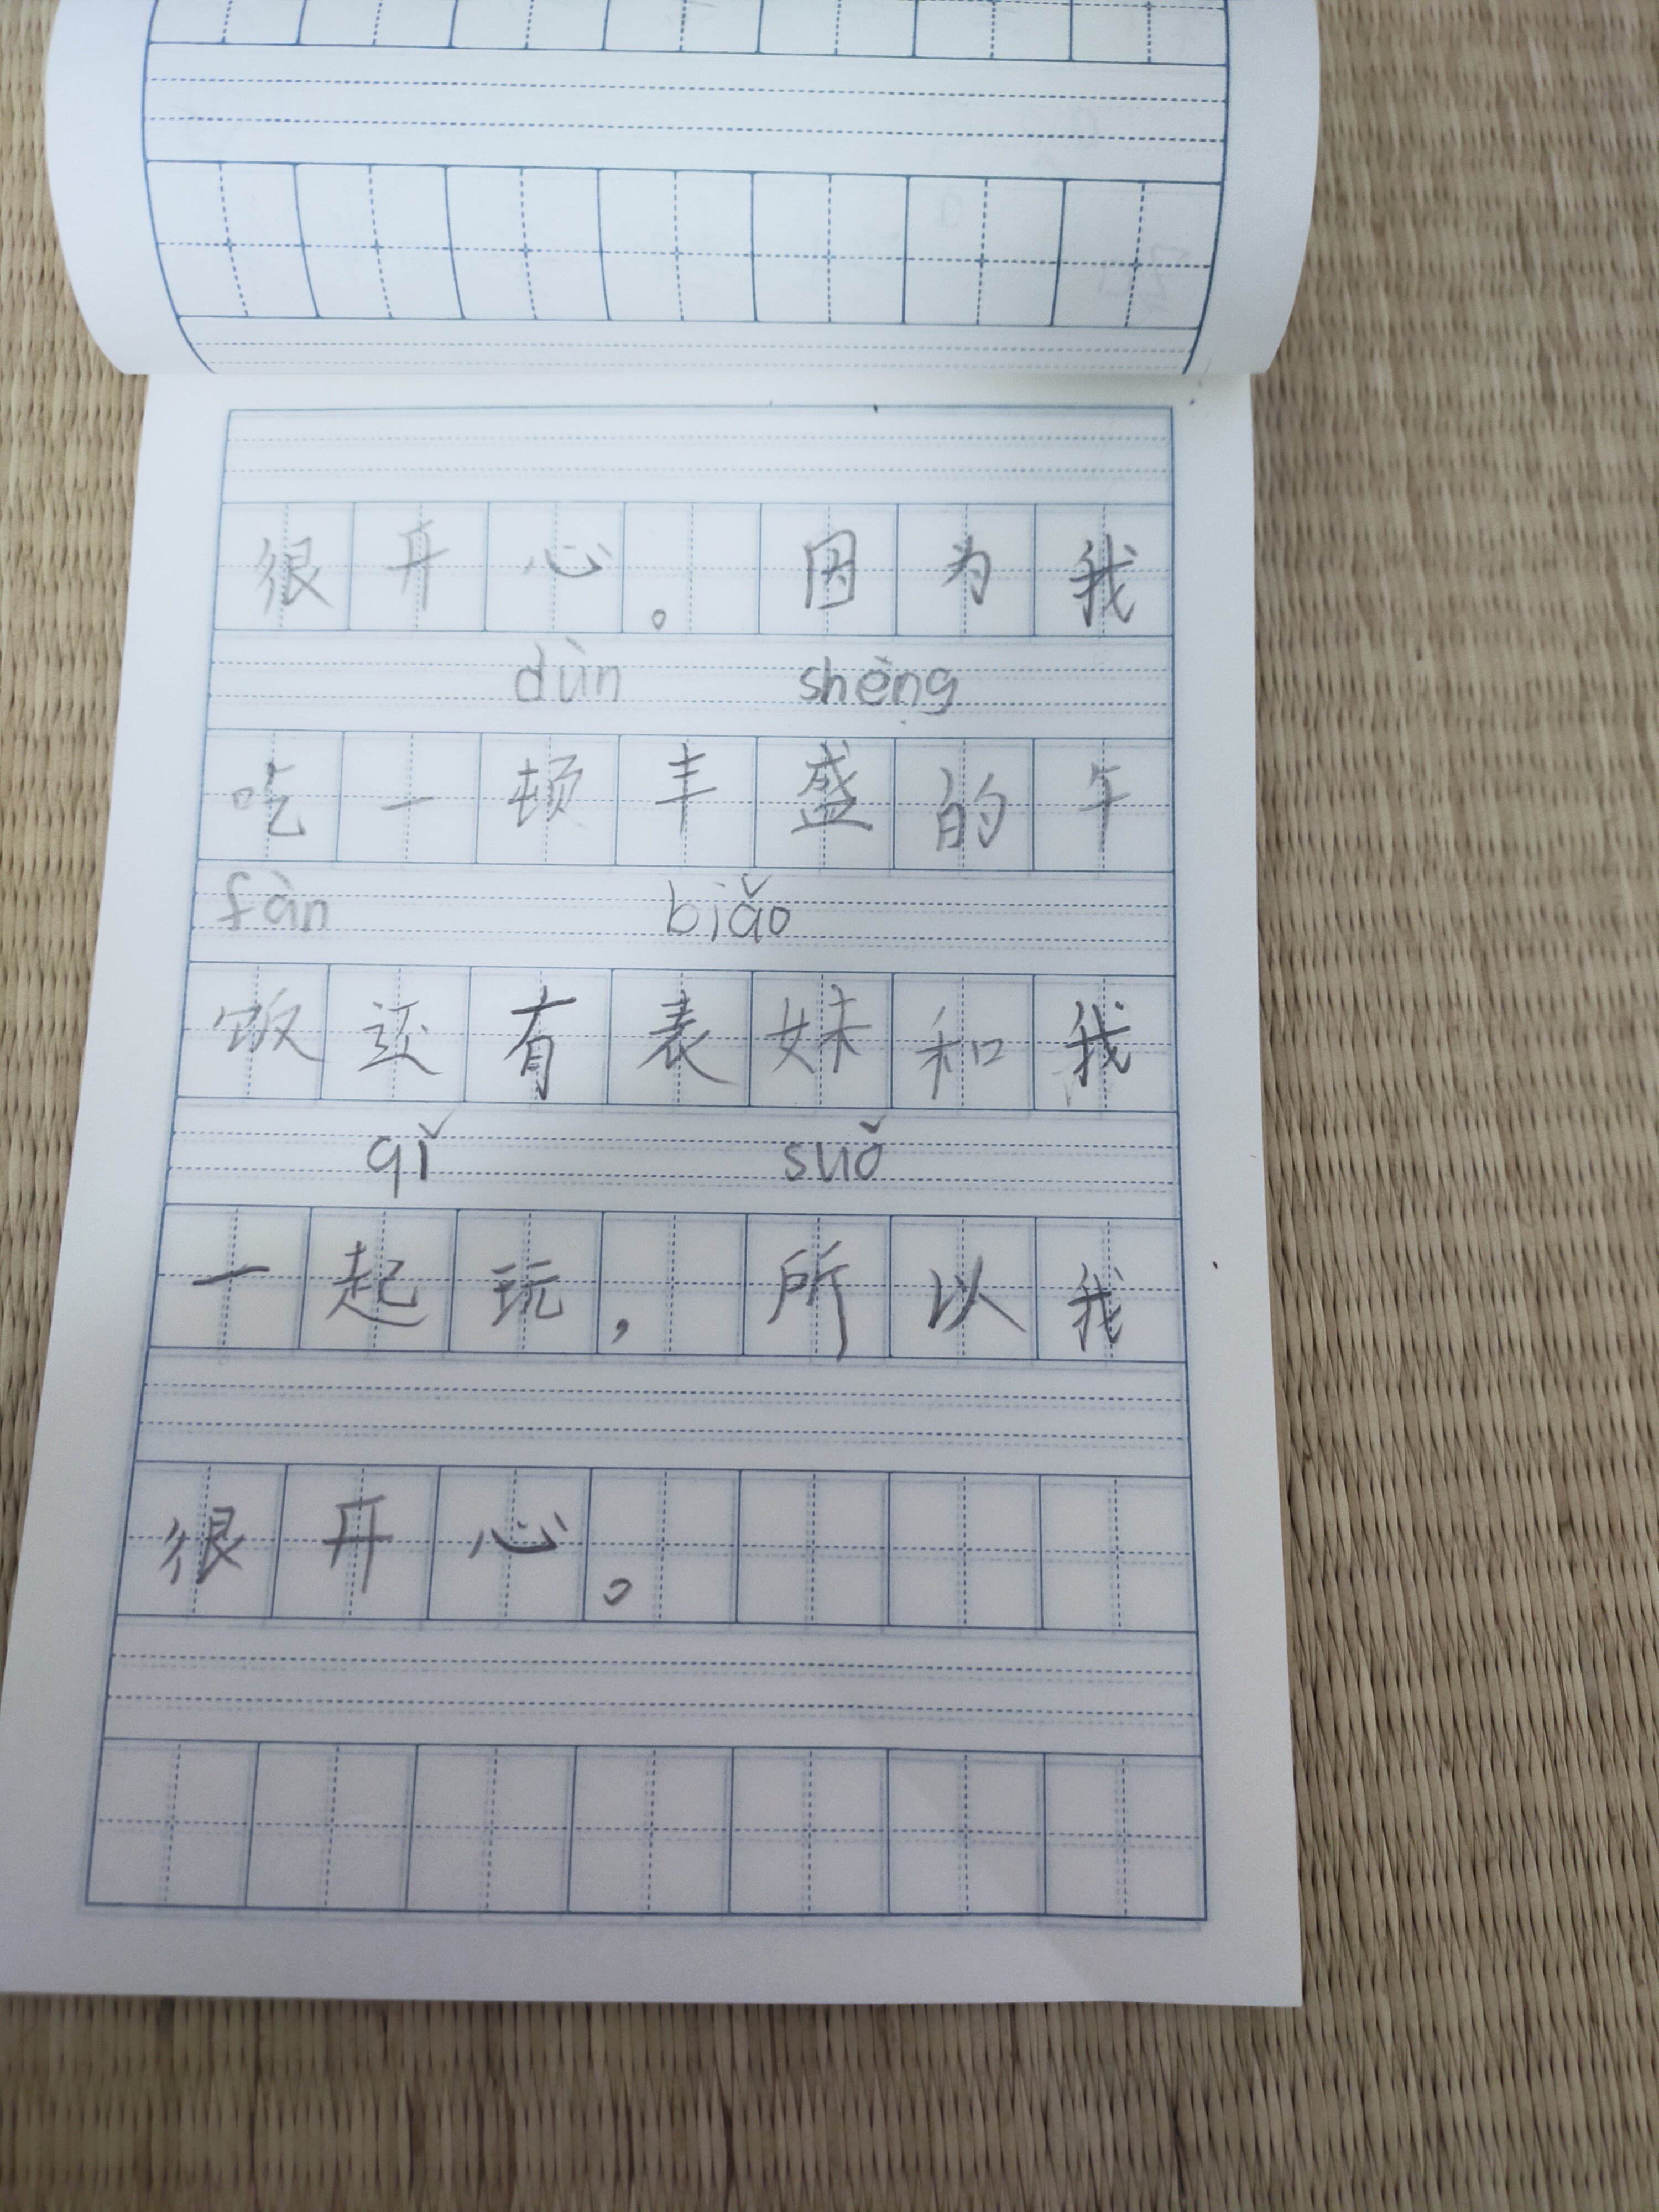 很开心。因为我
dùn shèng
吃一顿丰盛的午
fàn biǎo
饭还有表妹和我
qǐ suǒ
一起玩，所以我
很开心。